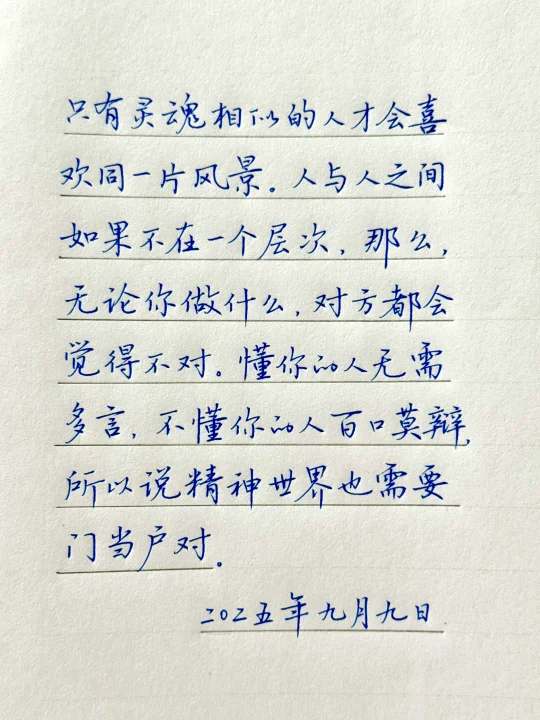 只有灵魂相似的人才会喜
欢同一片风景。人与人之间
如果不在一个层次，那么，
无论你做什么，对方都会
觉得不对。懂你的人无需
多言，不懂你的人百口莫辩，
所以说精神世界也需要
门当户对。
二〇二五年九月九日